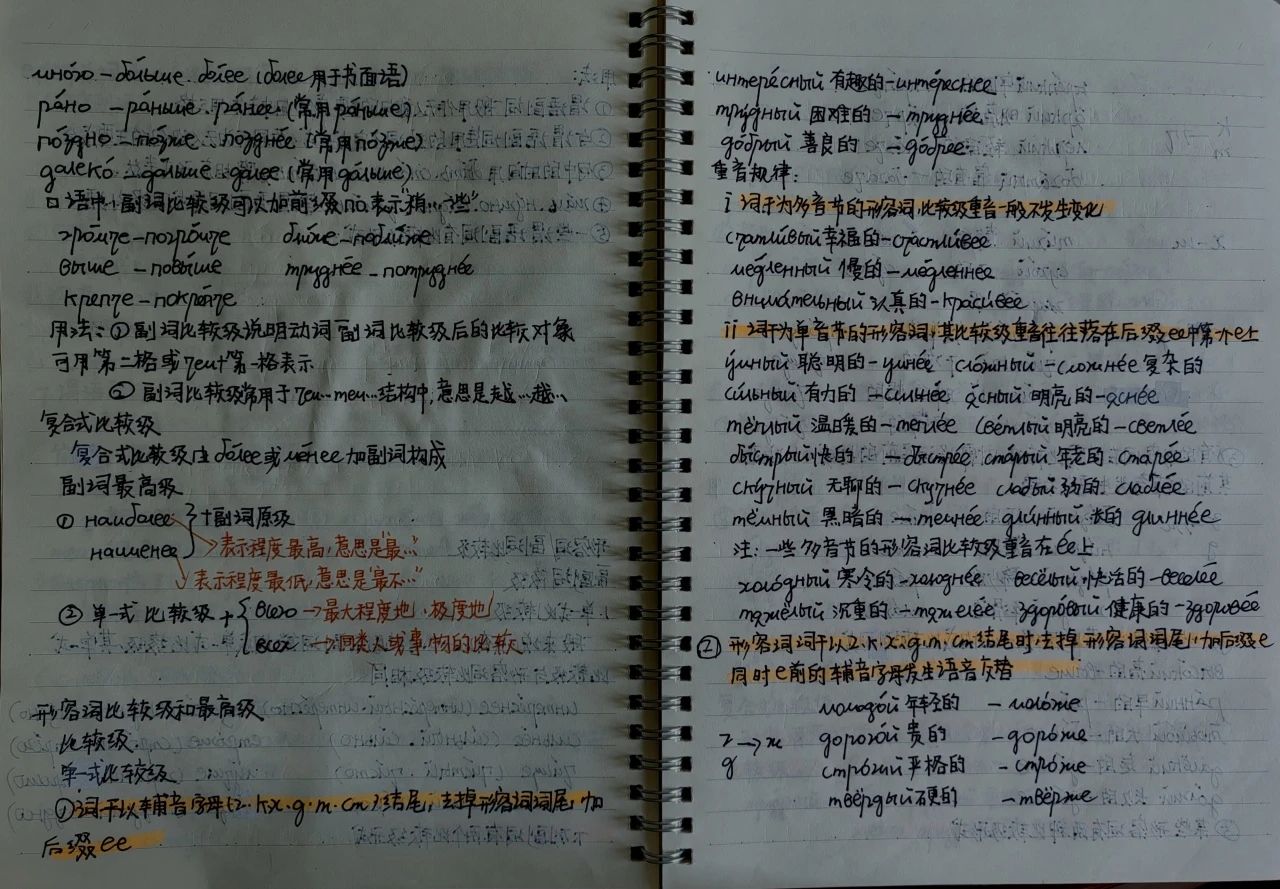 мно́го – бо́льше. бо́лее (более用于书面语)
ра́но – ра́ньше. ра́нее (常用 ра́ньше)
по́здно – по́зже. позднее (常用 по́зже)
далеко́ – да́льше. да́лее (常用 да́льше)
口语中,副词比较级可以加前缀 по 表示"稍…些"
гро́мче – погро́мче бли́же – побли́же
выше – повыше трудне́е – потрудне́е
крепче – покрепче
用法: ① 副词比较级说明动词 副词比较级后的比较对象
可用第二格或чем+第一格表示
② 副词比较级常用于 чем… тем… 结构中,意思是越…越…
复合式比较级
复合式比较级由 бо́лее 或 ме́нее 加副词构成
副词最高级
① наиболее } +副词原级
наименее
表示程度最高,意思是"最…"
表示程度最低,意思是"最不…"
② 单一式比较级 + { всего → 最大程度地,极度地
всех → 同类人或事物的比较
形容词比较级和最高级
比较级
单一式比较级
①词干以辅音字母(г.к.х.д.т.ст)结尾,去掉形容词词尾,加
后缀 ее
интере́сный 有趣的 – интере́снее
тру́дный 困难的 – трудне́е
до́брый 善良的 – добре́е
重音规律:
i 词干为多音节的形容词,比较级重音一般不发生变化
счастли́вый 幸福的 – счастли́вее
ме́дленный 慢的 – ме́дленнее
внима́тельный 认真的 – краси́вее
ii 词干为单音节的形容词,其比较级重音往往落在后缀ее中第一个е上
у́мный 聪明的 – умне́е сло́жный – сложне́е 复杂的
си́льный 有力的 – сильне́е я́сный 明亮的 – ясне́е
тёплый 温暖的 – тепле́е све́тлый 明亮的 – светле́е
бы́стрый 快的 – быстре́е ста́рый 年老的. старе́е
ску́чный 无聊的 – скучне́е сла́бый 弱的. слабе́е
тёмный 黑暗的 – темне́е дли́нный 长的 длинне́е
注: 一些多音节的形容词比较级重音在 е́е 上
холо́дный 寒冷的 – холодне́е весёлый 快活的 – веселе́е
тяжёлый 沉重的 – тяжеле́е здоро́вый 健康的 – здорове́е
② 形容词词干以г.к.х.д.т.ст结尾时,去掉形容词词尾,加后缀е
同时е前的辅音字母发生语音交替
молодо́й 年轻的 – моло́же
г → ж дорого́й 贵的 – доро́же
д стро́гий 严格的 – стро́же
твёрдый 硬的 – твёрже